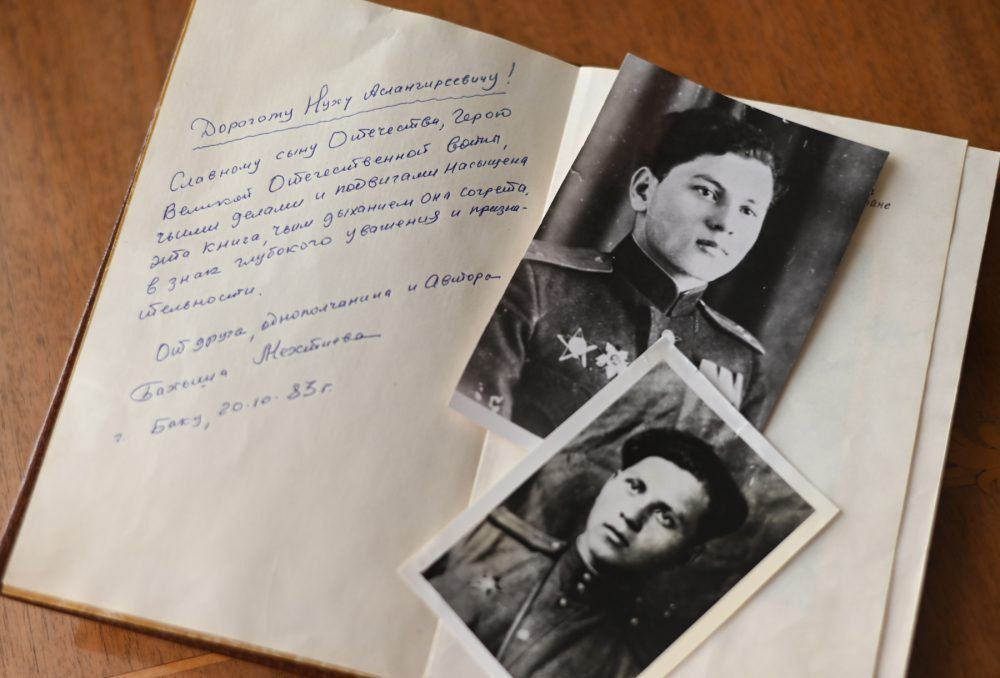 Дорогому Нуху Аслангиреевичу!
Славному сыну Отечества, Герою
Великой Отечественной войны,
чьими делами и подвигами насыщена
эта книга, чьим дыханием она согрета,
в знак глубокого уважения и призна-
тельности.
От друга, однополчанина и Автора
Бахыша Мехтиева
г. Баку, 20.10.83г.